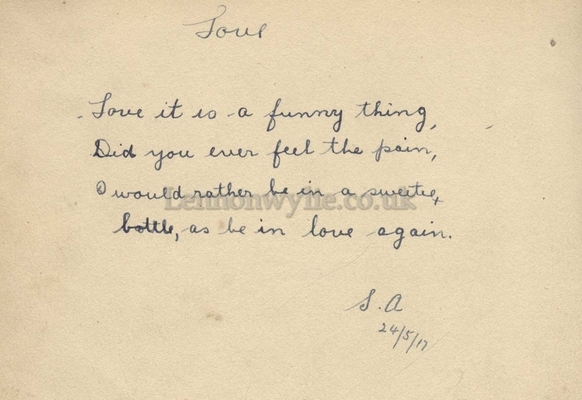 Love
Love it is a funny thing,
Did you ever feel the pain,
I would rather be in a sweetie,
Lennonwylie.co.uk
bottle, as be in love again.
S. A
24/5/17